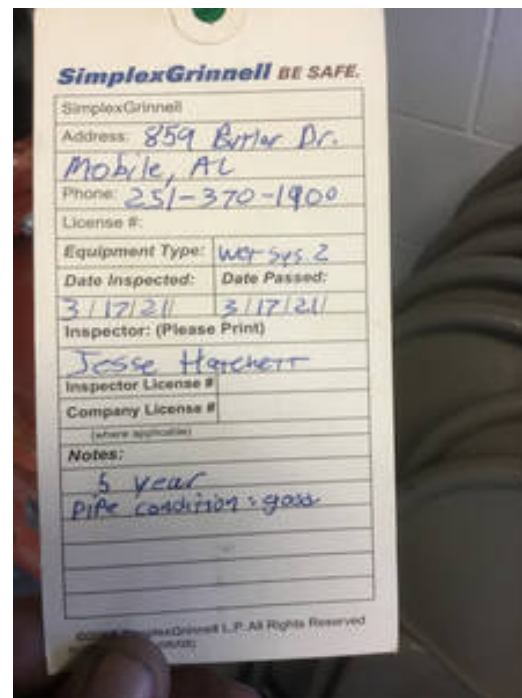 SimplexGrinnell BE SAFE.
SimplexGrinnell
Address: 859 Butler Dr.
Mobile, AL
Phone: 251-370-1900
License #:
Equipment Type: Wet Sys. 2
Date Inspected: Date Passed:
3/17/21 3/17/21
Inspector: (Please Print)
Jesse Hatchett
Inspector License #
Company License #
(where applicable)
Notes:
5 year
Pipe condition: good
SimplexGrinnell L.P. All Rights Reserved